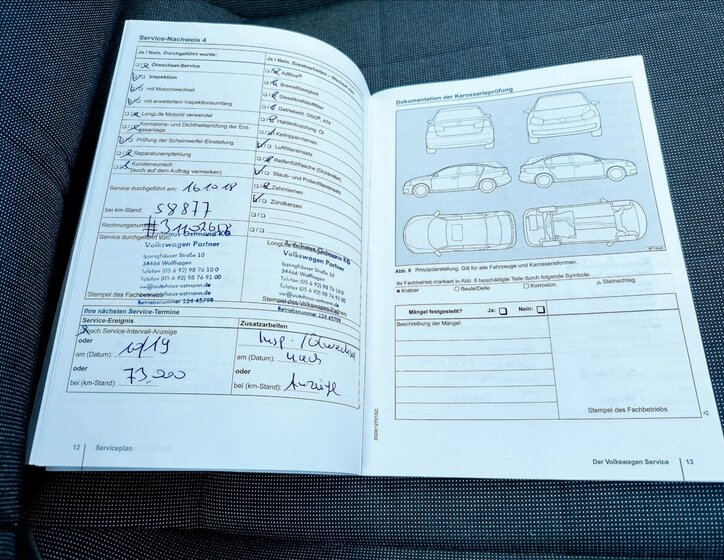 Service-Nachweis 4
Ja / Nein. Durchgeführt wurde:
Ölwechsel-Service
Inspektion
mit Motorölwechsel
mit erweitertem Inspektionsumfang
LongLife Motoröl verwendet
Korrosions- und Dichtheitsprüfung der Erd-
gasanlage
Prüfung der Scheinwerfer-Einstellung
Reparaturempfehlung
Kundenwunsch
(auch auf dem Auftrag vermerken)
Service durchgeführt am: 16.10.18
bei km-Stand: 58877
Rechnungsnummer
Service durchgeführt von:
Autohaus Ostmann KG
Volkswagen Partner
Ippinghäuser Straße 10
34466 Wolfhagen
Telefon (05 6 92) 98 76 10 0
Telefax (05 6 92) 98 76 91 00
vw@autohaus-ostmann.de
www.autohaus-ostmann.de
Betriebsnummer 124 45799
Stempel des Fachbetriebs
Ja / Nein. Zusatzarbeiten
AdBlue®
Bremsflüssigkeit
Dieselkraftstofffilter
Getriebeöl: DSG®
Haldexkupplung: Öl
Keilrippenriemen
Luftfiltereinsatz
Reifenfüllflasche (Dichtmittel)
Staub- und Pollenfiltereinsatz
Zahnriemen
Zündkerzen
Autohaus Ostmann KG
Volkswagen Partner
Ippinghäuser Straße 10
34466 Wolfhagen
Telefon (05 6 92) 98 76 10 0
Telefax (05 6 92) 98 76 91 00
vw@autohaus-ostmann.de
www.autohaus-ostmann.de
Betriebsnummer 124 45799
Ihre nächsten Service-Termine
Service-Ereignis
nach Service-Intervall-Anzeige
oder
am (Datum): 10/19
oder
bei (km-Stand): 73.000
Zusatzarbeiten
Insp. / Ölwechsel
nach
am (Datum):
oder
bei (km-Stand): Anzeige
12 Serviceplan
Dokumentation der Karosserieprüfung
Abb. 6 Prinzipdarstellung. Gilt für alle Fahrzeuge und Karosserieformen.
Ihr Fachbetrieb markiert in Abb. 6 beschädigte Teile durch folgende Symbole:
x Kratzer ○ Beule/Delle □ Korrosion △ Steinschlag
Mängel festgestellt? Ja: Nein:
Beschreibung der Mängel:
Stempel des Fachbetriebs
3G0012701SC
Der Volkswagen Service 13